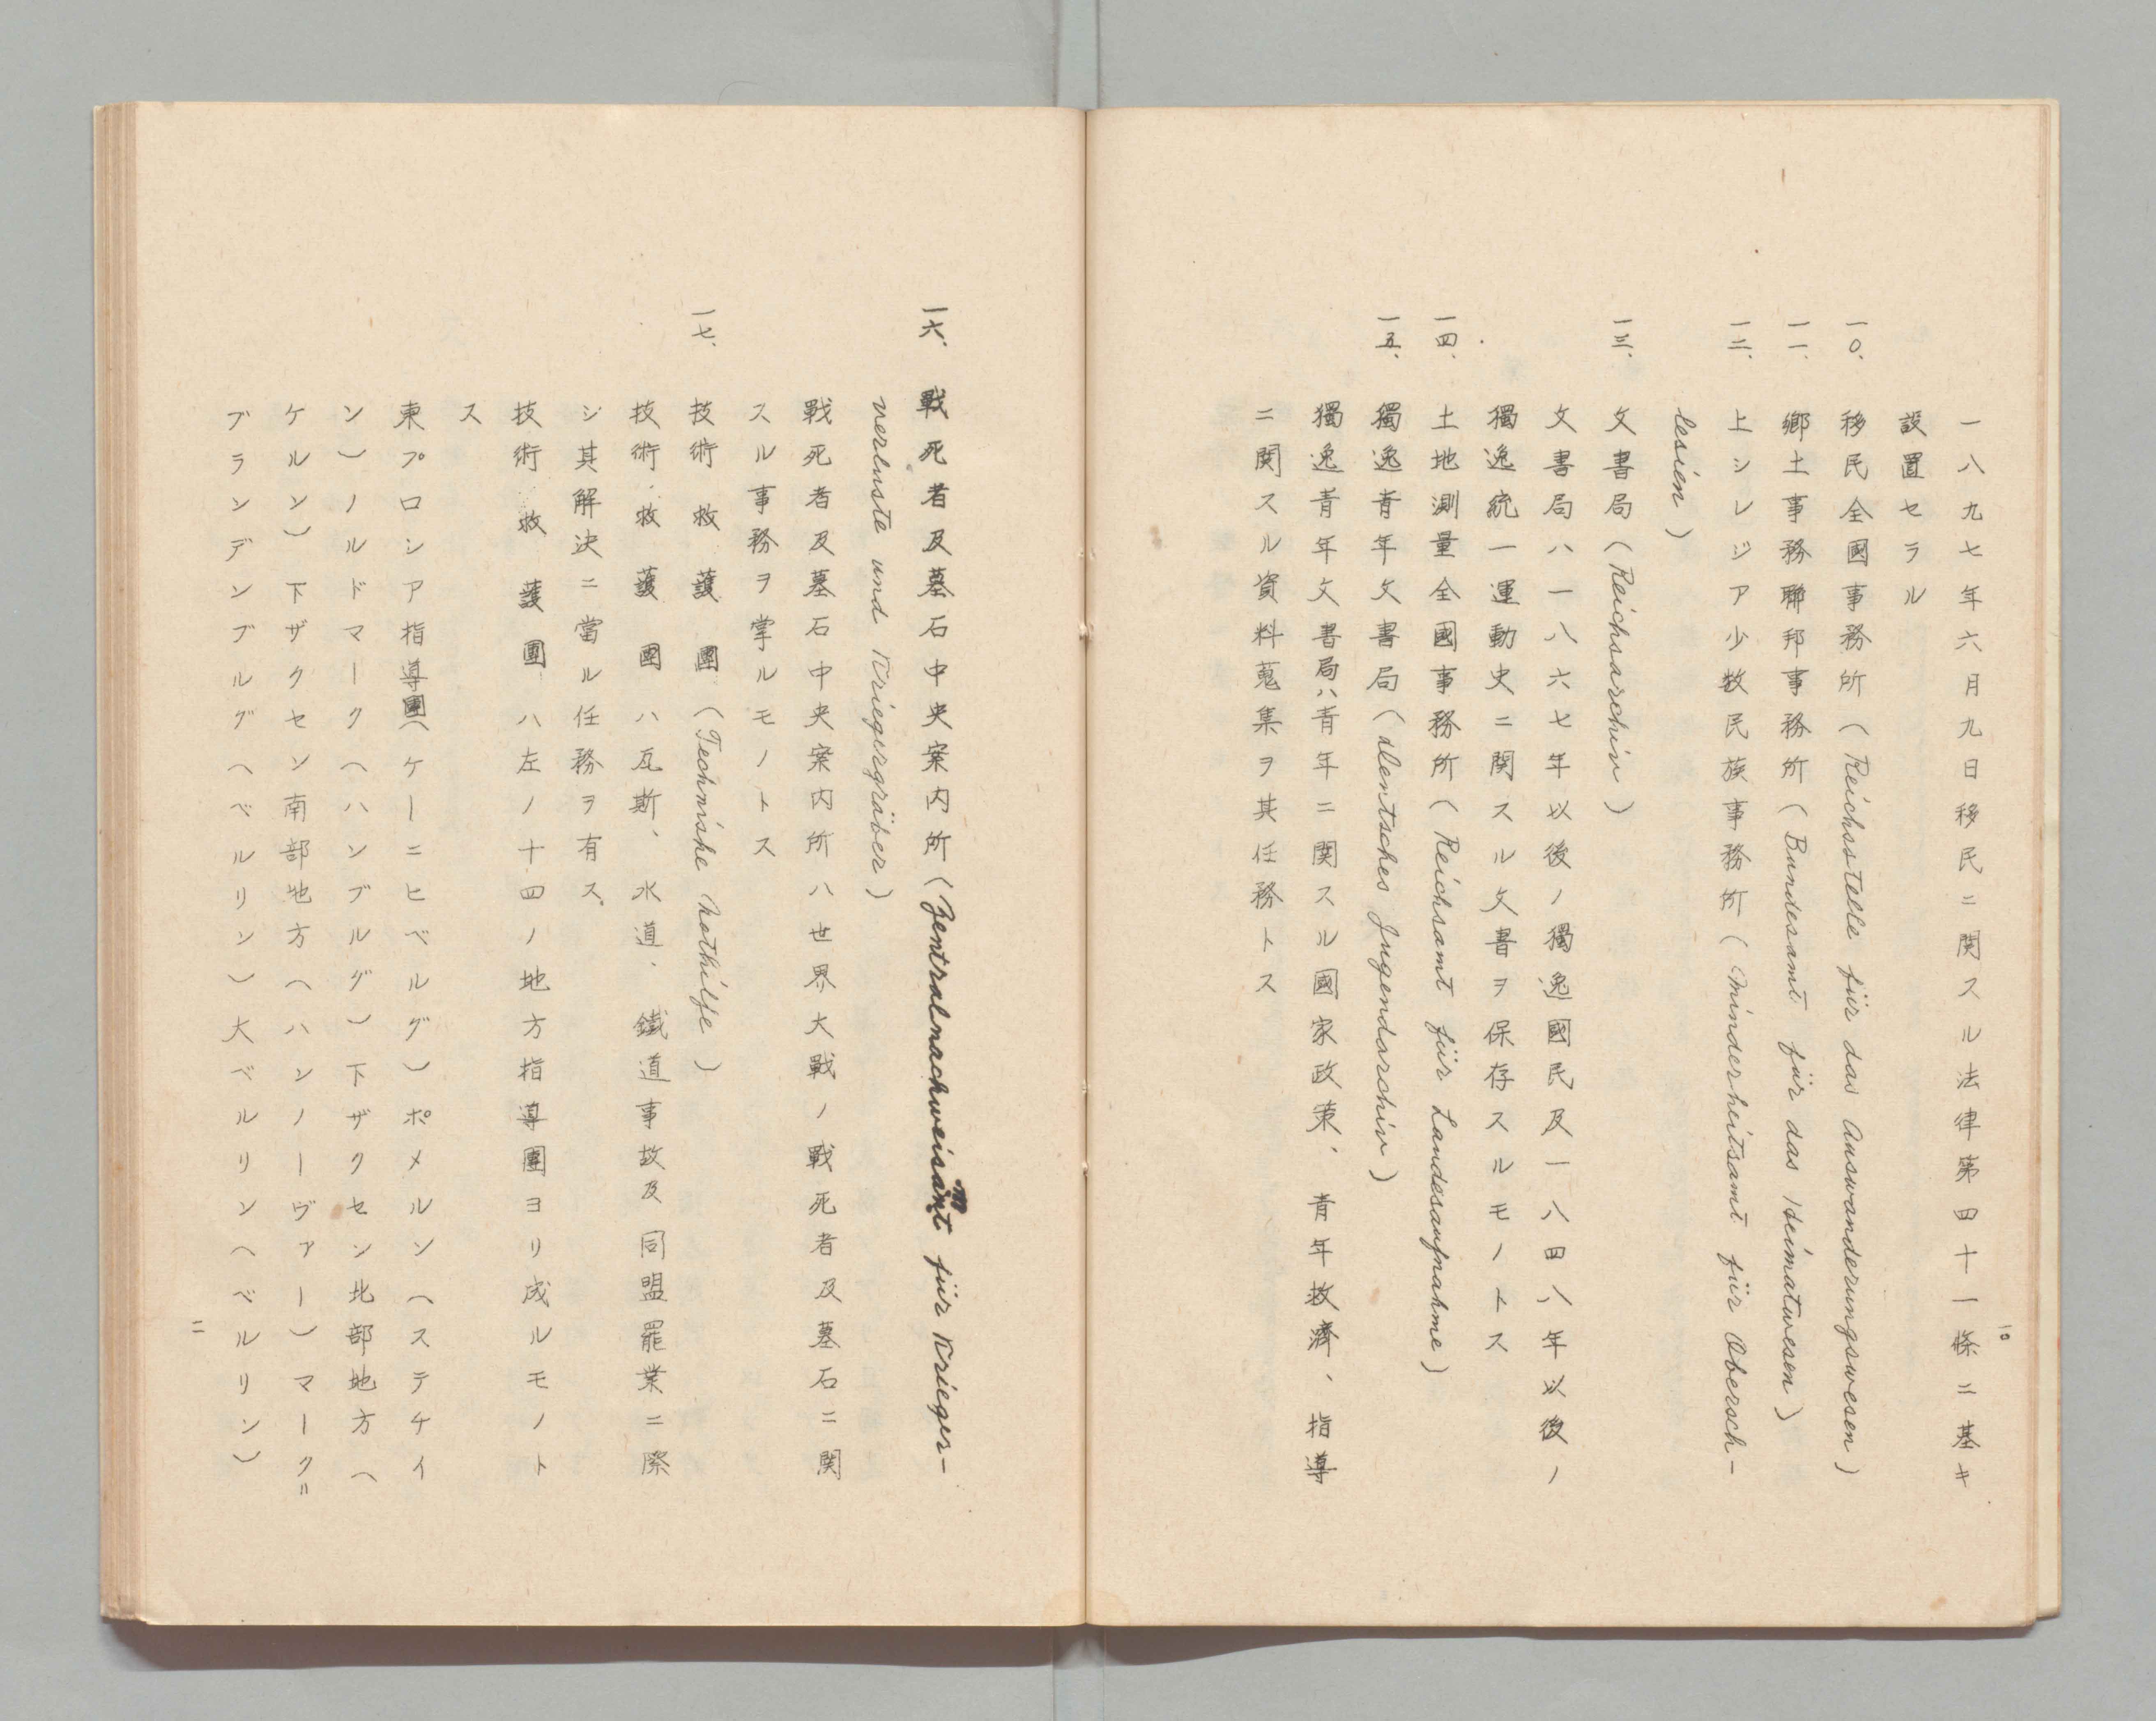 一八九七年六月九日移民ニ関スル法律第四十一條ニ基キ
設置セラル
一〇. 移民全國事務所(Reichsstelle für das Auswanderungswesen)
一一. 鄉土事務聯邦事務所(Bundesamt für das Heimatwesen)
一二. 上シレジア少数民族事務所(Minderheitsamt für Obersch-
lesien)
一三. 文書局(Reichsarchiv)
文書局ハ一八六七年以後ノ獨逸國民及一八四八年以後ノ
獨逸統一運動史ニ関スル文書ヲ保存スルモノトス
一四. 土地測量全國事務所(Reichsamt für Landesaufnahme)
一五. 獨逸青年文書局(Deutsches Jugendarchiv)
獨逸青年文書局ハ青年ニ関スル國家政策、青年救濟、指導
ニ関スル資料蒐集ヲ其任務トス
一〇
一六. 戰死者及墓石中央案内所(Zentralnachweisamt für Krieger-
verluste und Kriegergräber)
戰死者及墓石中央案内所ハ世界大戰ノ戰死者及墓石ニ関
スル事務ヲ掌ルモノトス
一七. 技術救護團(Technishe Nothilfe)
技術救護團ハ瓦斯、水道、鐵道事故及同盟罷業ニ際
シ其解決ニ當ル任務ヲ有ス
技術救護團ハ左ノ十四ノ地方指導團ヨリ成ルモノト
ス
東プロシア指導團(ケーニヒベルグ)ポメルン(ステチイ
ン)ノルドマーク(ハンブルグ)下ザクセン北部地方(
ケルン)下ザクセン南部地方(ハンノーヴアー)マーク=
ブランデンブルグ(ベルリン)大ベルリン(ベルリン)
二